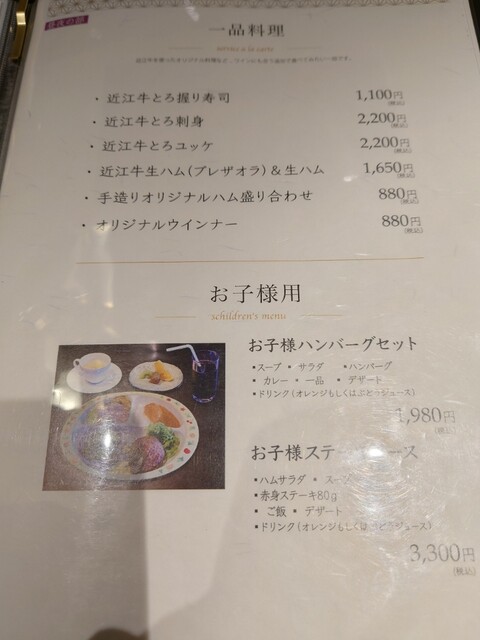 一品料理
menus à la carte
・近江牛とろ握り寿司 1,100円(税込)
・近江牛とろ刺身 2,200円(税込)
・近江牛とろユッケ 2,200円(税込)
・近江牛生ハム(ブレザオラ)&生ハム 1,650円(税込)
・手造りオリジナルハム盛り合わせ 880円(税込)
・オリジナルウインナー 880円(税込)
お子様用
schildren's menu
お子様ハンバーグセット
▪スープ ▪ サラダ ▪ハンバーグ
▪ カレー ▪ 一品 ▪ デザート
▪ドリンク(オレンジもしくはぶどうジュース)
1,980円
(税込)
お子様ステーキコース
▪ハムサラダ ▪ スープ
▪赤身ステーキ80g
▪ ご飯 ▪ デザート
▪ドリンク(オレンジもしくはぶどうジュース)
3,300円
(税込)